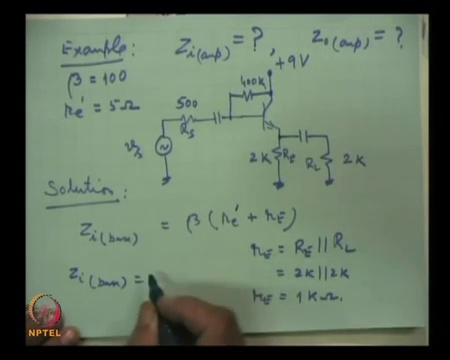 Example: Zi(amp) = ? , Zo(amp) = ?
β = 100
re' = 5Ω
+9V
400K
500
Rs
vs
2K RE
RL 2K
Solution:
Zi(base) = β (re' + rE)
rE = RE || RL
= 2K || 2K
rE = 1KΩ.
Zi(base) =
NPTEL